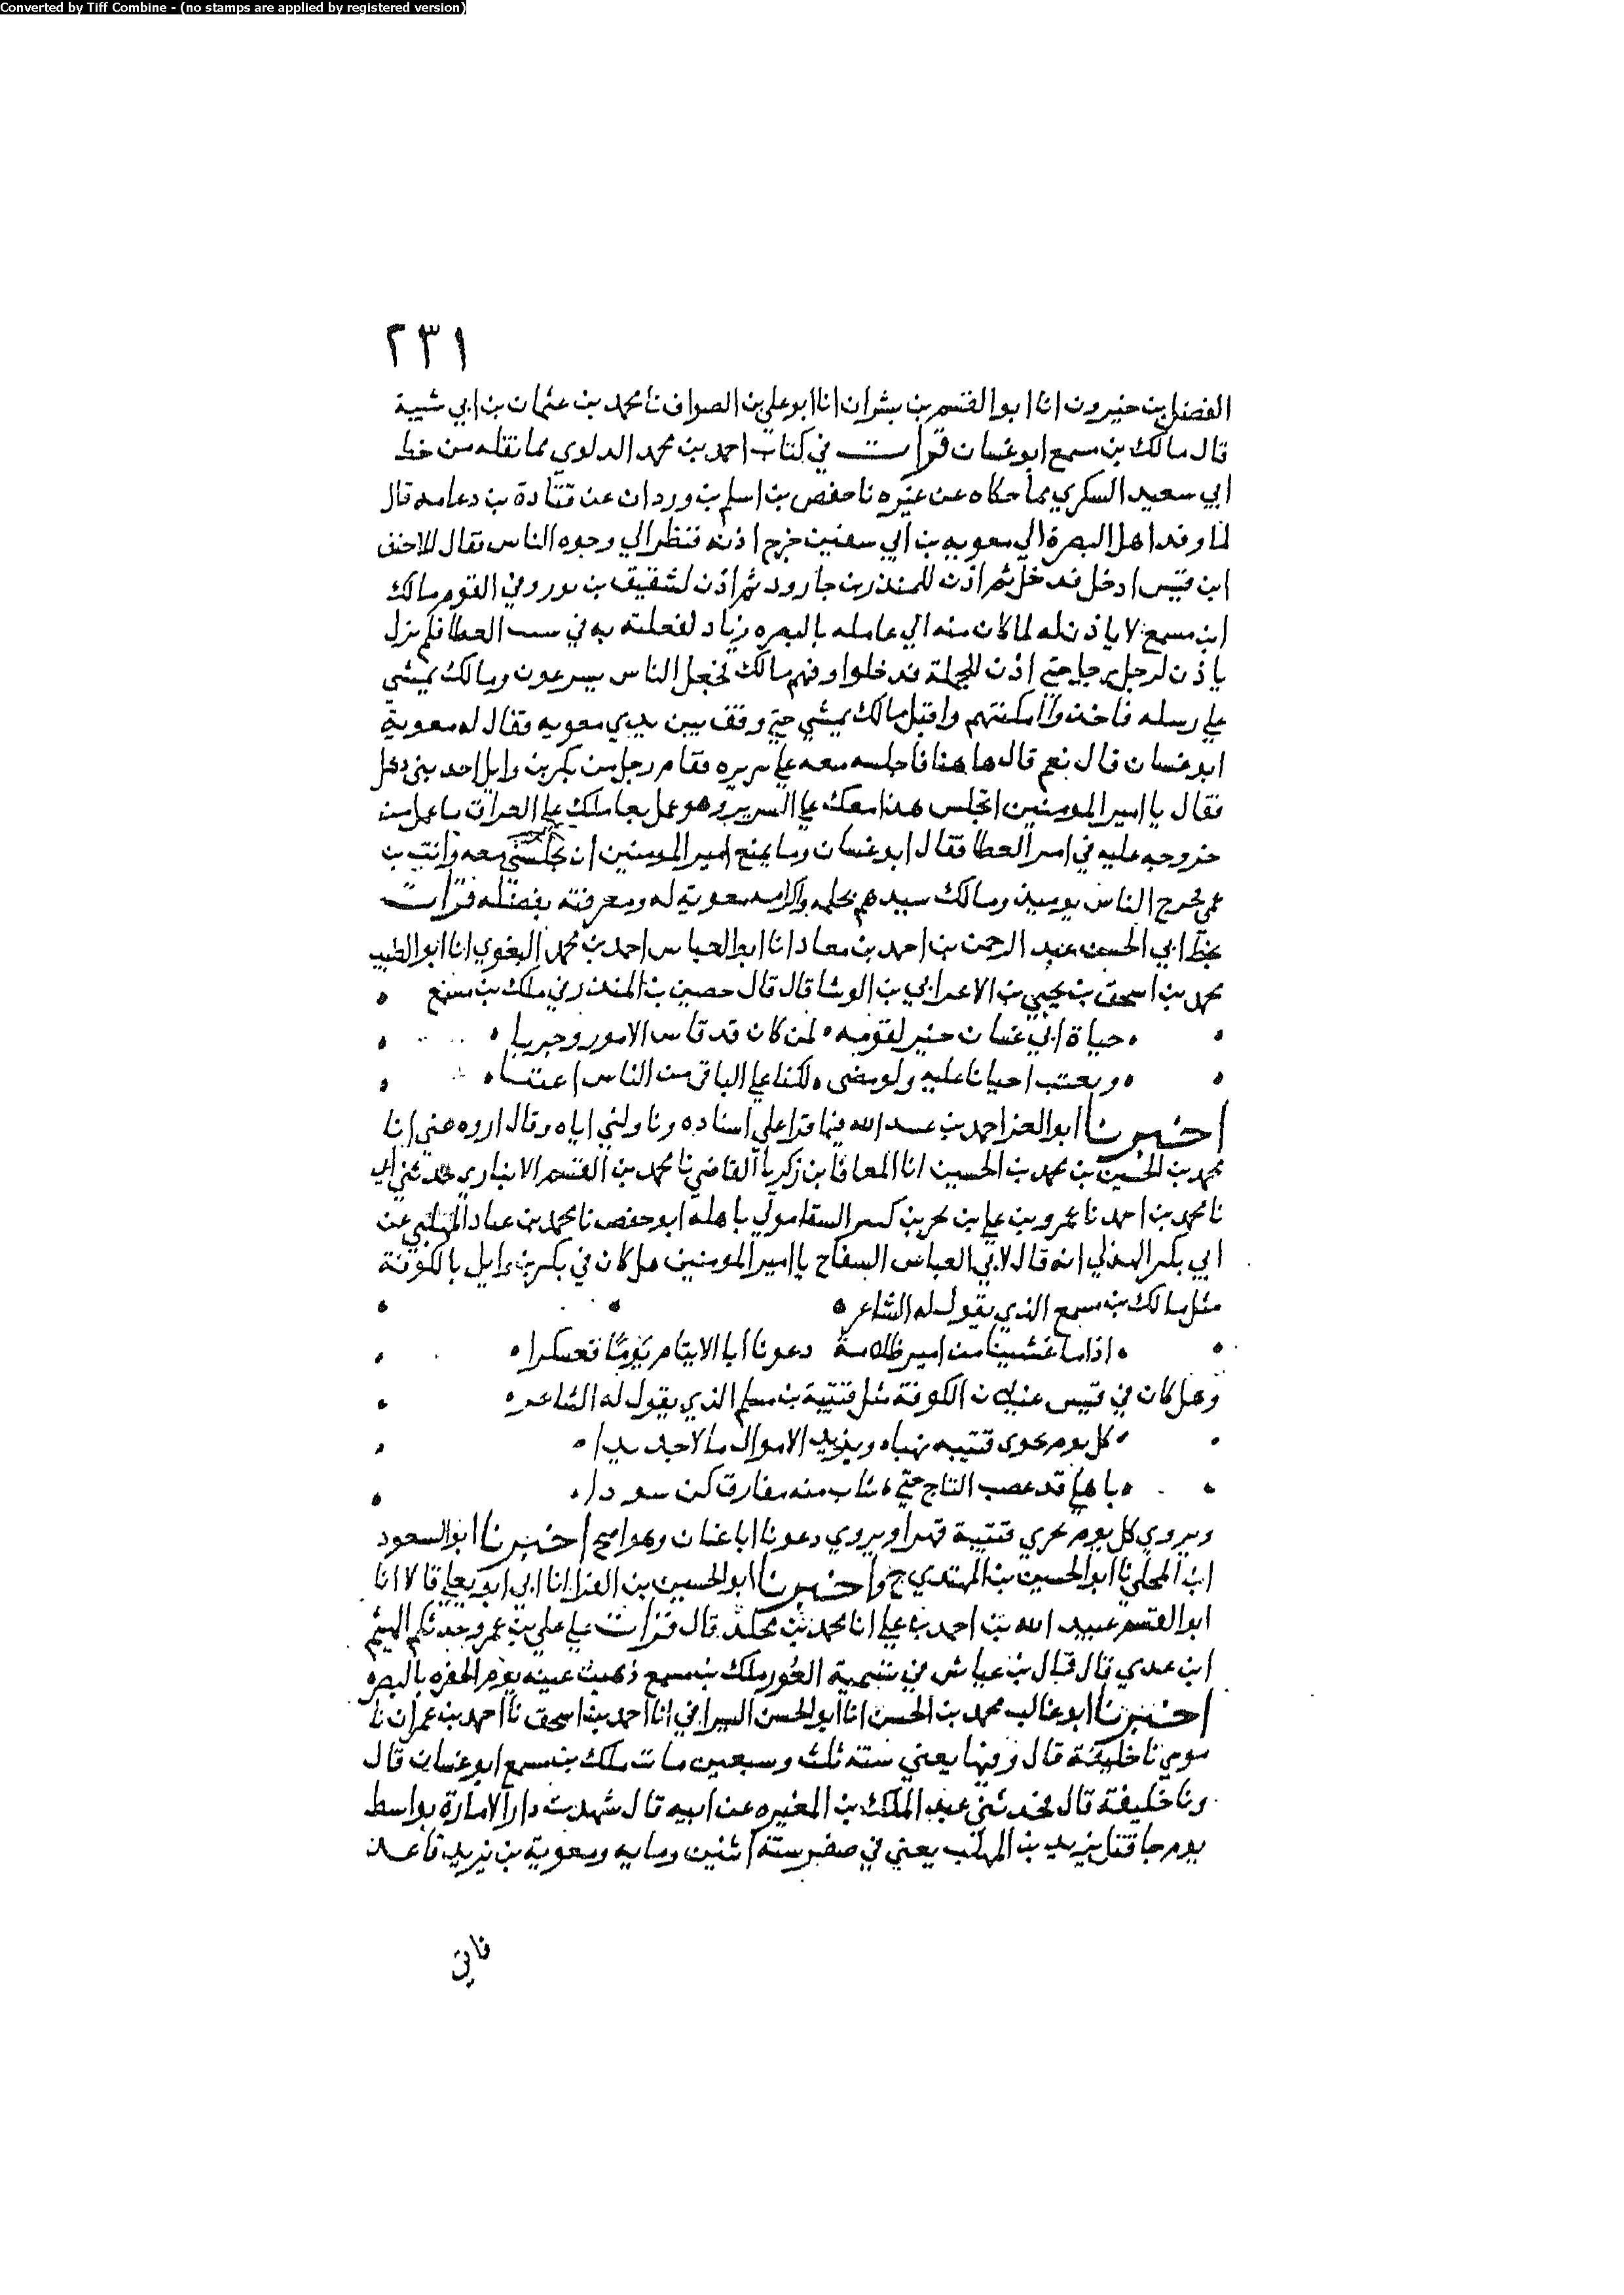 Converted by Tiff Combine - (no stamps are applied by registered version)
٢٣١
الفضل بن خيرون انا ابو القسم بن بشران انا ابو علي بن الصواف نا محمد بن عثمان بن ابي شيبة
قال مالك بن مسمع ابو غسان قرات في كتاب احمد بن محمد الدلوى مما نقله من خط
ابي سعيد السكري مما حكاه عن غيره نا حفص بن اسلم بن وردان عن قتادة بن دعامه قال
لما وفد اهل البصرة الي معويه بن ابي سفين خرج اذنه فنظر الي وجوه الناس فقال للاحنف
ابن قيس ادخل فدخل ثم اذن للمنذر بن جارود ثم اذن لشقيق بن ثور وفي القوم مالك
ابن مسمع لا ياذن له لما كان منه الي عامله بالبصره زياد لفعلته به في سبب العطا فلم يزل
ياذن لرجل رجل حتي اذن للجملة فدخلوا وفيهم مالك فجعل الناس يسرعون ومالك يمشي
علي رسله فاخذوا امكنتهم واقبل مالك يمشي حتي وقف بين يدي معويه فقال له معوية
ابو غسان قال نعم قال ها هنا فاجلسه معه علي سريره فقام رجل من بكر بن وايل احد بني ذهل
فقال يا امير المومنين اتجلس هذا معك علي السرير وهو عمل بعاملك علي العراق ما عمل من
خروجه عليه في امر العطا فقال ابو غسان وما يمنع امير المومنين ان يجلسني معه وانت بن
عمي فخرج الناس يوميذ ومالك سيدهم بحلمه واكرامه معوية له ومعرفته بفضله قرات
بخط ابي الحسين عبد الرحمن بن احمد بن معاد انا ابو العباس احمد بن محمد البغوي انا ابو الطيب
محمد بن اسحق بن يحيي بن الاعرابي بن الوشا قال قال حصين بن المنذر في ملك بن مسمع
حياة ابي غسان خير لقومه لمن كان قد قاس الامور وجربا
ويعتب احيانا عليه ولو مضى لكنا علي الباقي من الناس اعتبا
اخبرنا ابو العز احمد بن عبيد الله فيما قرا علي اسناده وناولني اياه وقال اروه عني انا
محمد بن الحسين بن محمد بن الحسين انا المعافا بن زكريا القاضي نا محمد بن القسم الانباري حدثني ابي
نا محمد بن احمد نا عمرو بن علي بن بحر بن كنيز السقا مولي باهله ابو حفص نا محمد بن عباد المهلبي عن
ابي بكر الهذلي انه قال لابي العباس السفاح يا امير المومنين هل كان في بكر بن وايل بالكوفة
مثل مالك بن مسمع الذي يقول له الشاعر
اذا ما غشينا من امير ظلامة دعونا ابا الايتام يوما فعسكرا
وهل كان في قيس عيلان الكوفة مثل قتيبة بن مسلم الذي يقول له الشاعر
كل يوم يحوى قتيبه نهبا ويزيد الاموال مالا جديدا
باهلي قد عصب التاج حتي شاب منه مفارق كن سودا
ويروي كل يوم يحوي قتيبة قهرا ويروي دعونا ابا غسان وهو اصح اخبرنا ابو السعود
ابن المجلي نا ابو الحسين بن المهتدي ح واخبرنا ابو الحسين بن الفرا انا ابي ابو يعلي قالا انا
ابو القسم عبيد الله بن احمد بن علي انا محمد بن مخلد قال قرات علي علي بن عمرو حدثكم الهيثم
ابن عدي قال قال بن عياش في تسمية العور ملك بن مسمع ذهبت عينه يوم الجفره بالبصره
اخبرنا ابو غالب محمد بن الحسن انا ابو الحسن السيرافي انا احمد بن اسحق نا احمد بن عمران نا
موسي نا خليفة قال وفيها يعني سنة ثلث وسبعين مات ملك بن مسمع ابو غسان قال
ونا خليفة قال فحدثني عبد الملك بن المغيره عن ابيه قال شهدت دار الامارة بواسط
يوم جا قتل يزيد بن المهلب يعني في صفر سنة اثنين ومايه ومعوية بن يزيد قاعد
فاتي